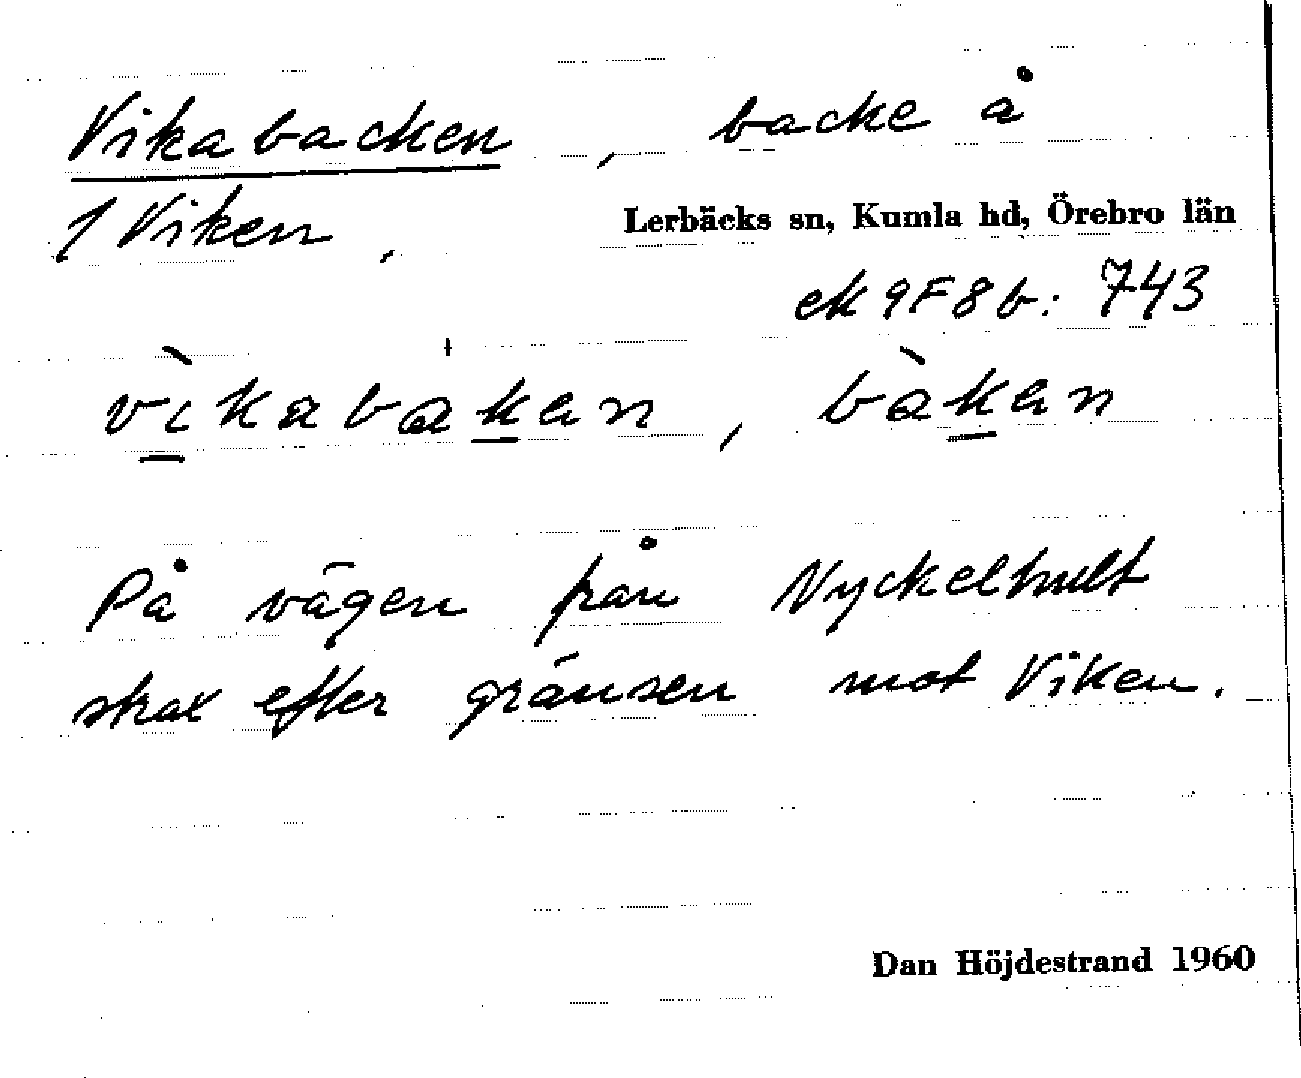 Vikabacken, backe å
1 Viken.
Lerbäcks sn, Kumla hd, Örebro län
ek 9F8b: 743
vìkabakan, bàkan
På vägen från Nyckelhult
strax efter gränsen mot Viken.
Dan Höjdestrand 1960